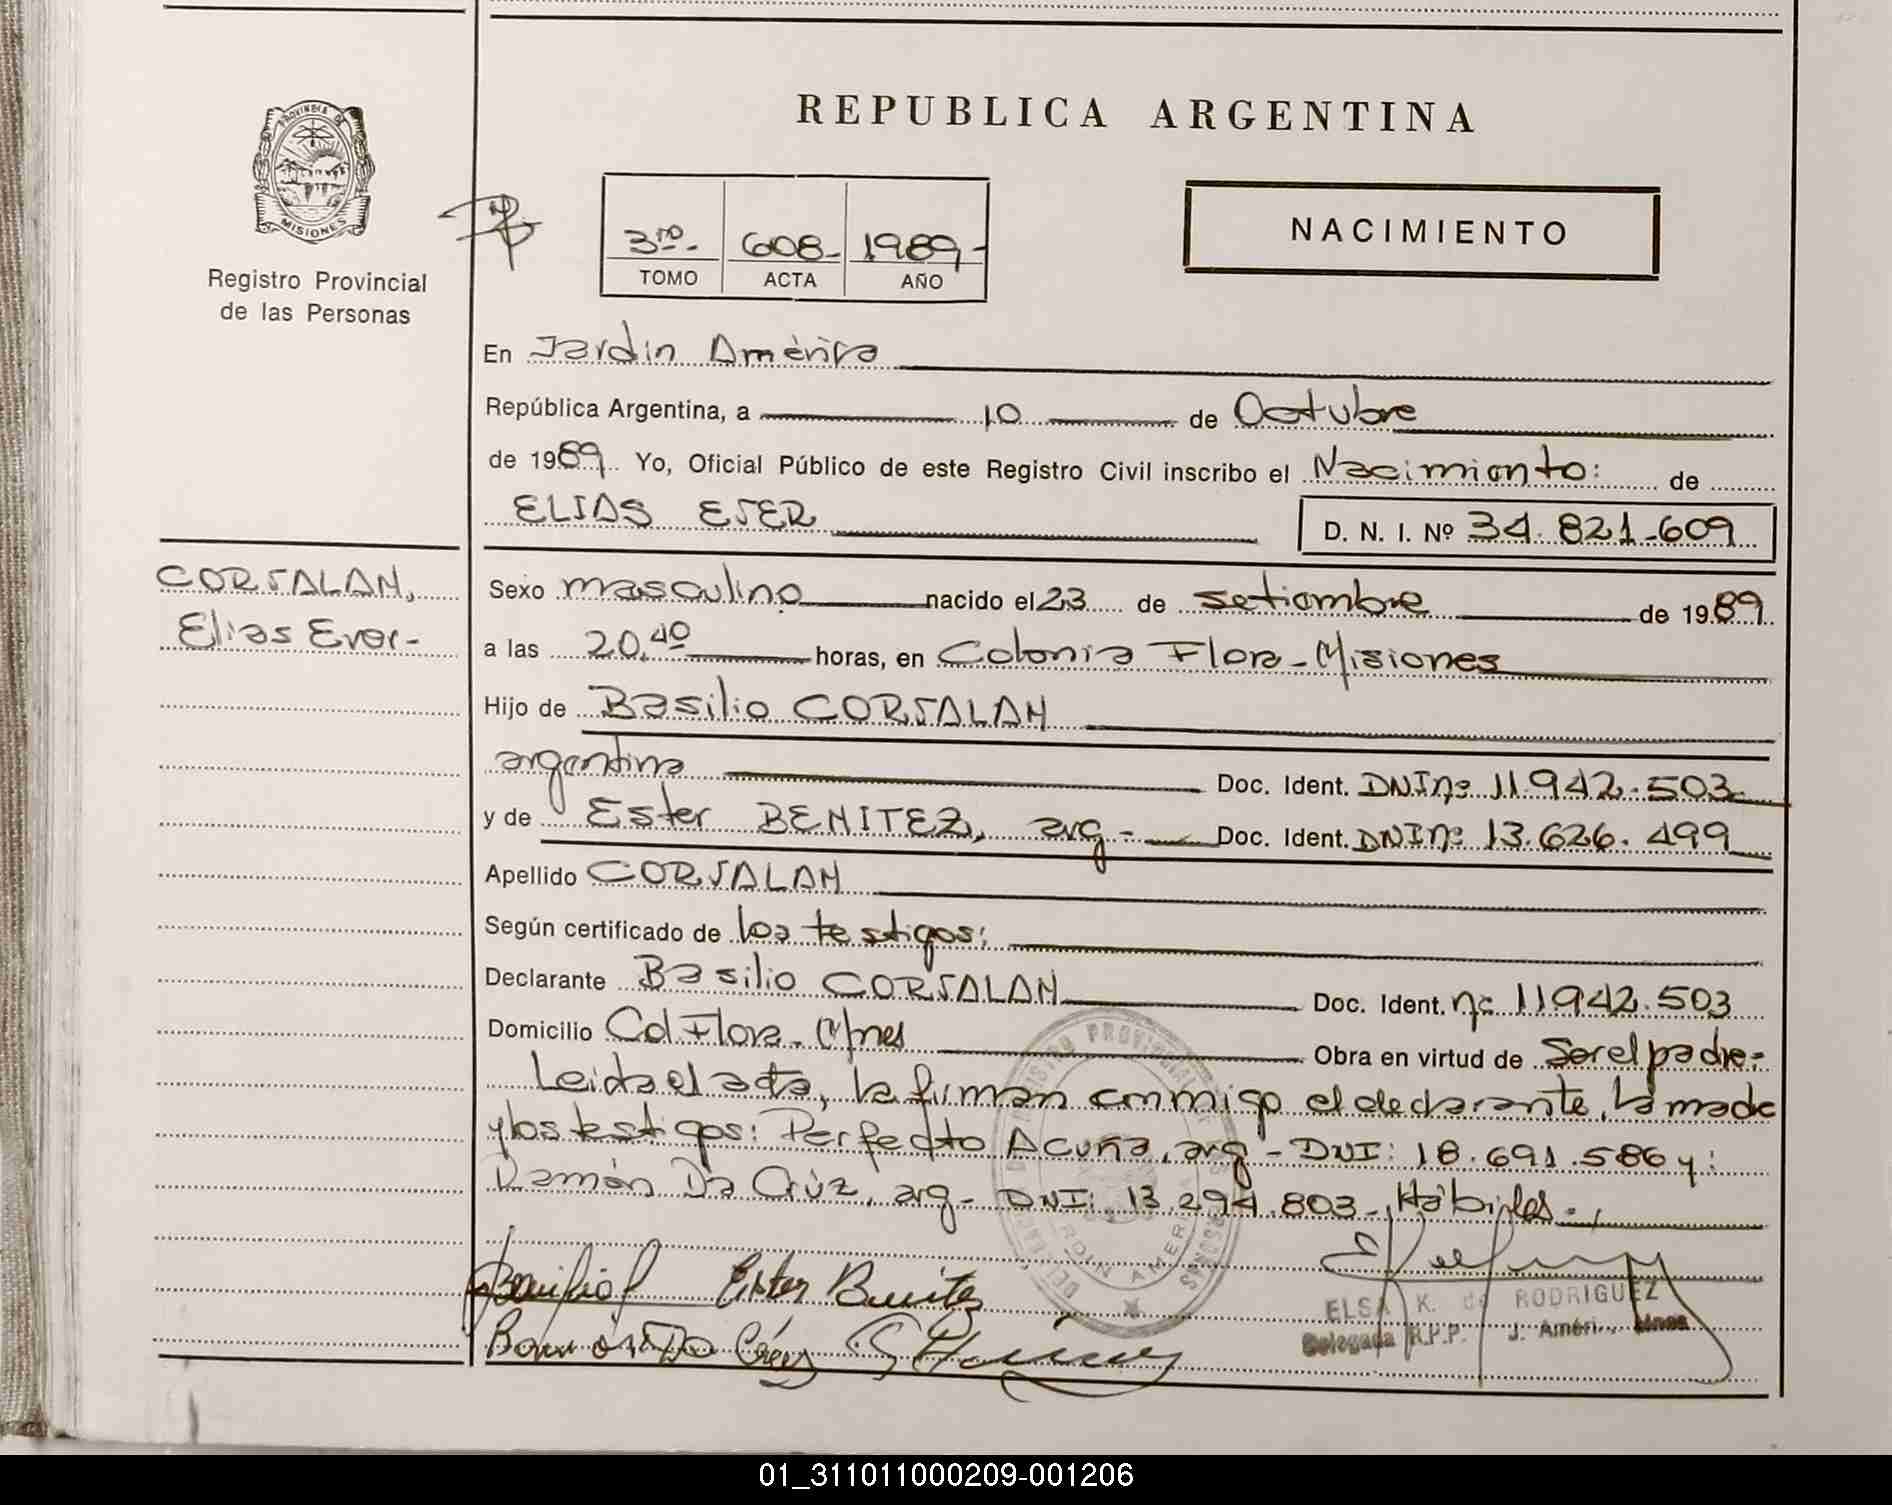 REPUBLICA ARGENTINA
PROVINCIA DE MISIONES
Registro Provincial
de las Personas
3ro.- 608- 1989-
TOMO ACTA AÑO
NACIMIENTO
En Jardin América
República Argentina, a 10 de Octubre
de 1989. Yo, Oficial Público de este Registro Civil inscribo el Nacimiento: de
ELIAS EVER
D. N. I. Nº 34.821.609
CORVALAN,
Elias Ever-
Sexo masculino nacido el 23 de setiembre de 1989
a las 20,40 horas, en Colonia Flora-Misiones
Hijo de Basilio CORVALAN
argentina Doc. Ident. DNInº 11942.503
y de Ester BENITEZ, arg- Doc. Ident. DNInº 13.626.499
Apellido CORVALAN
Según certificado de los testigos:
Declarante Basilio CORVALAN Doc. Ident. nº 11942.503
Domicilio Col Flora-Mnes Obra en virtud de Ser el padre-
Leida el acta, la firman conmigo el declarante, la madre
y los testigos: Perfecto Acuña, arg- DNI: 18.691.586 y:
Ramón Da Crúz, arg- DNI: 13.294.803- Hábiles.-
Ester Benitez
ELSA K. de RODRIGUEZ
Delegada R.P.P. J. Améri. Mnes
01_311011000209-001206